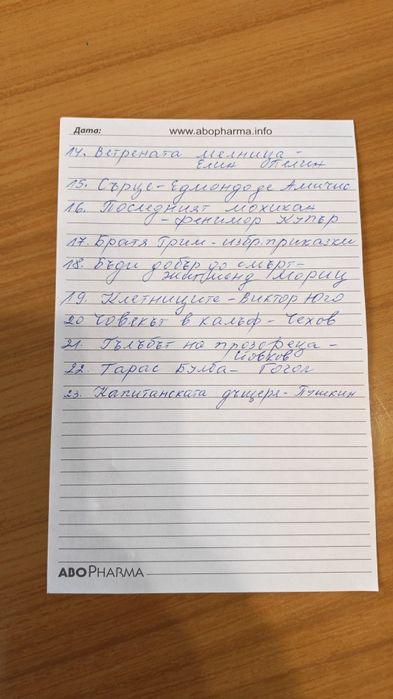 Дата: www.abopharma.info
14. Ветрената мелница -
Елин Пелин
15. Сърце - Едмондо де Амичис
16. Последният мохикан
- Фенимор Купър
17. Братя Грим - избр. приказки
18. Бъди добър до смърт -
Жигмонд Мориц
19. Клетниците - Виктор Юго
20 Човекът в калъф - Чехов
21. Гълъбът на прозореца -
Йовков
22. Тарас Булба - Гогол
23. Капитанската дъщеря - Пушкин
ABOPHARMA